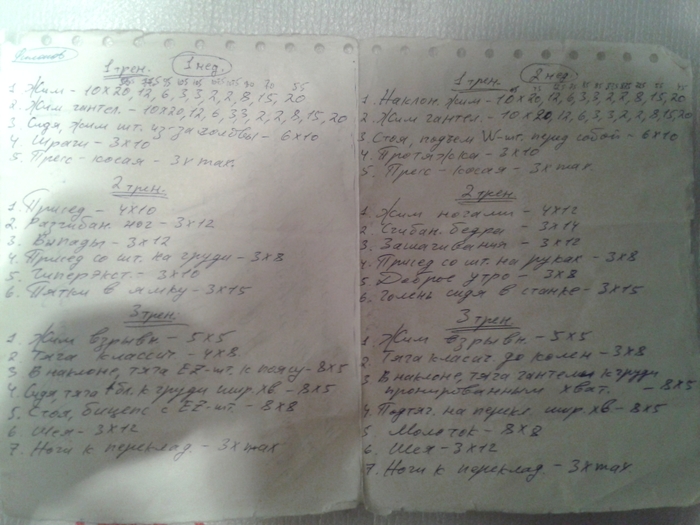 1 трен. 1 нед.
1 Жим - 10x20, 12, 6, 3, 3, 2, 2, 8, 15, 20
2. Жим гантел. - 10x20, 12, 6, 3, 3, 2, 2, 8, 15, 20
3. Сидя, жим шт. из-за головы - 6x10
4. Шраги - 3x10
5. Пресс - косая - 3x max.
2 трен.
1. Присед - 4x10
2. Разгибан. ног - 3x12
3. Выпады - 3x12
4. Присед со шт. на груди - 3x8
5. Гиперэкст. - 3x10
6. Пятки в ямку - 3x15
3 трен.
1. Жим взрывн. - 5x5
2. Тяга классич - 4x8
3 В наклоне, тяга EZ-шт. к поясу - 8x5
4 Сидя, тяга бл. к груди шир. хв - 8x5
5. Стоя, бицепс с EZ-шт. - 8x8
6. Шея - 3x12
7. Ноги к переклад - 3x max
1 трен. 2 нед
1. Наклон. жим - 10x20, 12, 6, 3, 3, 2, 2, 8, 15, 20
2. Жим гантел. - 10x20, 12, 6, 3, 3, 2, 2, 8, 15, 20
3 Стоя, подъем W-шт. перед собой - 6x10
4. Протяжка - 3x10
5. Прес - косая - 3x max.
2 трен.
1. Жим ногами - 4x12
2. Сгибан. бедра - 3x14
3. Зашагивания - 3x12
4. Присед со шт. на руках - 3x8
5 Доброе утро - 3x8
6. Голень сидя в станке - 3x15
3 трен.
1. Жим взрывн. - 5x5
2. Тяга класич до колен - 3x8
3 В наклоне, тяга гантели к груди
пронированным хват. - 8x5
4 Подтяг. на перекл. шир. хв - 8x5
5 Молоток - 8x8
6. Шея - 3x12
7. Ноги к переклад - 3x max